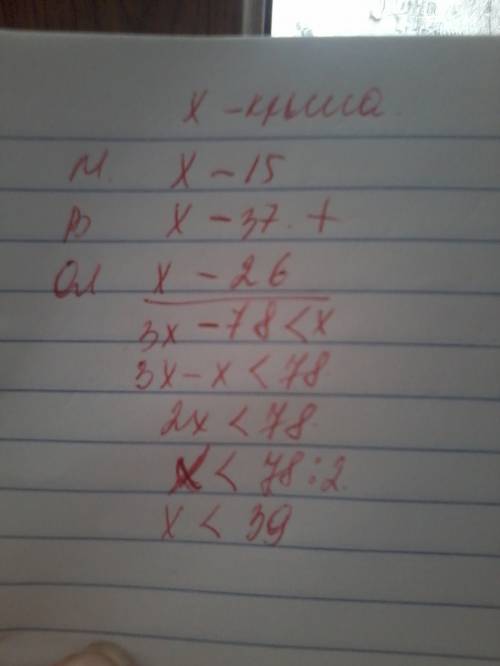 x - крыша
М. x - 15
В x - 37. +
Ол x - 26
3x - 78 < x
3x - x < 78
2x < 78.
x < 78:2
x < 39